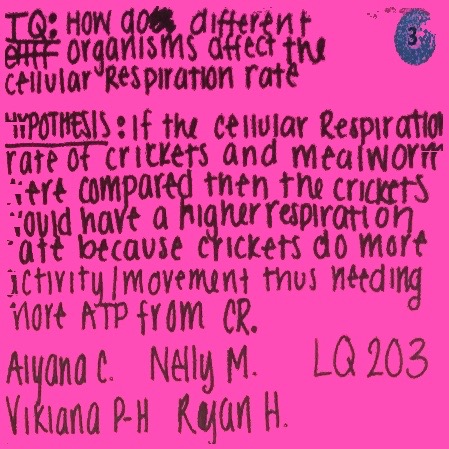 TQ: How do different
organisms affect the
cellular Respiration rate
3
HYPOTHESIS: If the cellular Respiration
rate of crickets and mealworm
were compared then the crickets
would have a higher respiration
rate because crickets do more
activity/movement thus needing
more ATP from CR.
Aiyana C. Nelly M. LQ 203
Vikiana P-H Ryan H.